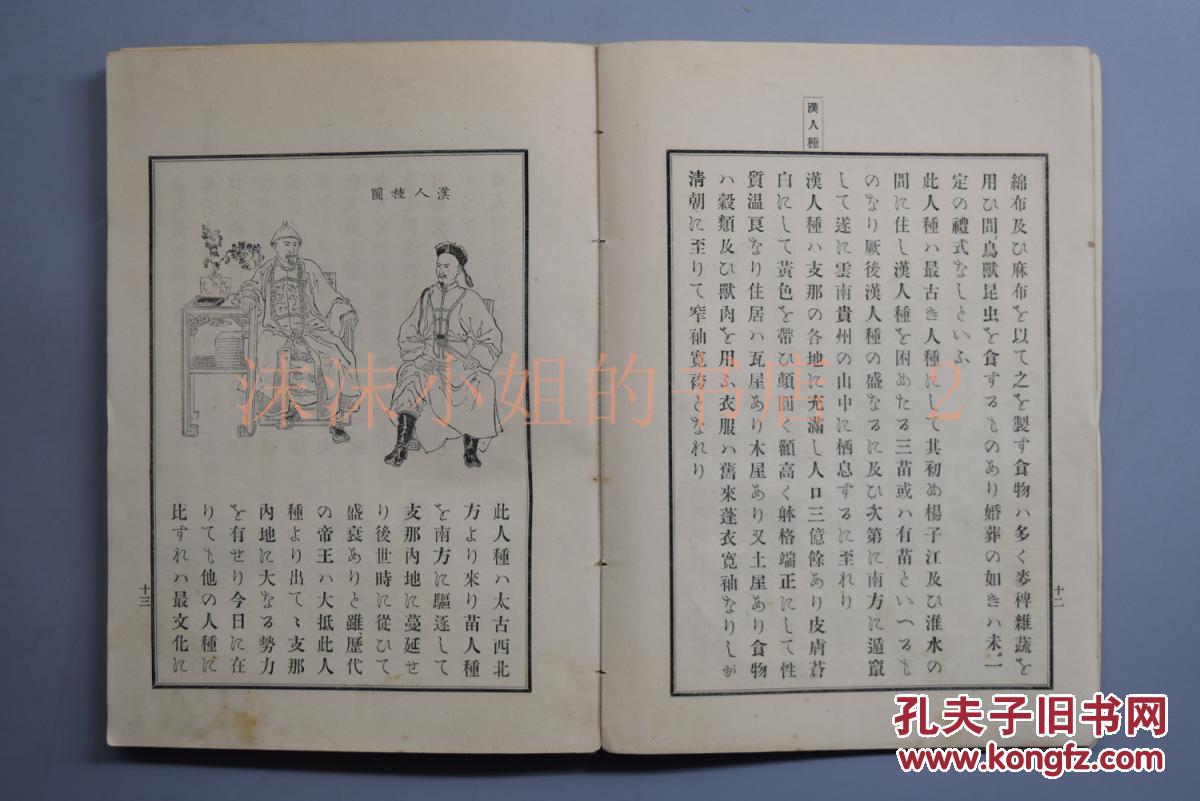 漢人種
綿布及ひ麻布を以て之を製す食物ハ多く麥稗雜蔬を
用ひ間鳥獸昆虫を食するものあり婚葬の如きハ未一
定の禮式なしといふ
此人種ハ最古き人種にして其初め楊子江及ひ淮水の
間に住し漢人種を困めたる三苗或ハ有苗といへるも
のなり厥後漢人種の盛なるに及ひ次第に南方に遁竄
して遂に雲南貴州の山中に栖息するに至れり
漢人種ハ支那の各地に充滿し人口三億餘あり皮膚蒼
白にして黃色を帶ひ顏圓く顴高く躰格端正にして性
質溫良なり住居ハ瓦屋あり木屋あり又土屋あり食物
ハ穀類及ひ獸肉を用ふ衣服ハ舊來蓬衣寬袖なりしが
清朝に至りて窄袖寬袴となれり
十二
漢人種圖
此人種ハ太古西北
方より來り苗人種
を南方に驅逐して
支那內地に蔓延せ
り後世時に從ひて
盛衰ありと雖歷代
の帝王ハ大抵此人
種より出てゝ支那
內地に大なる勢力
を有せり今日に在
りても他の人種に
比すれハ最文化に
十三
沫沫小姐的书店 2
孔夫子旧书网
www.kongfz.com